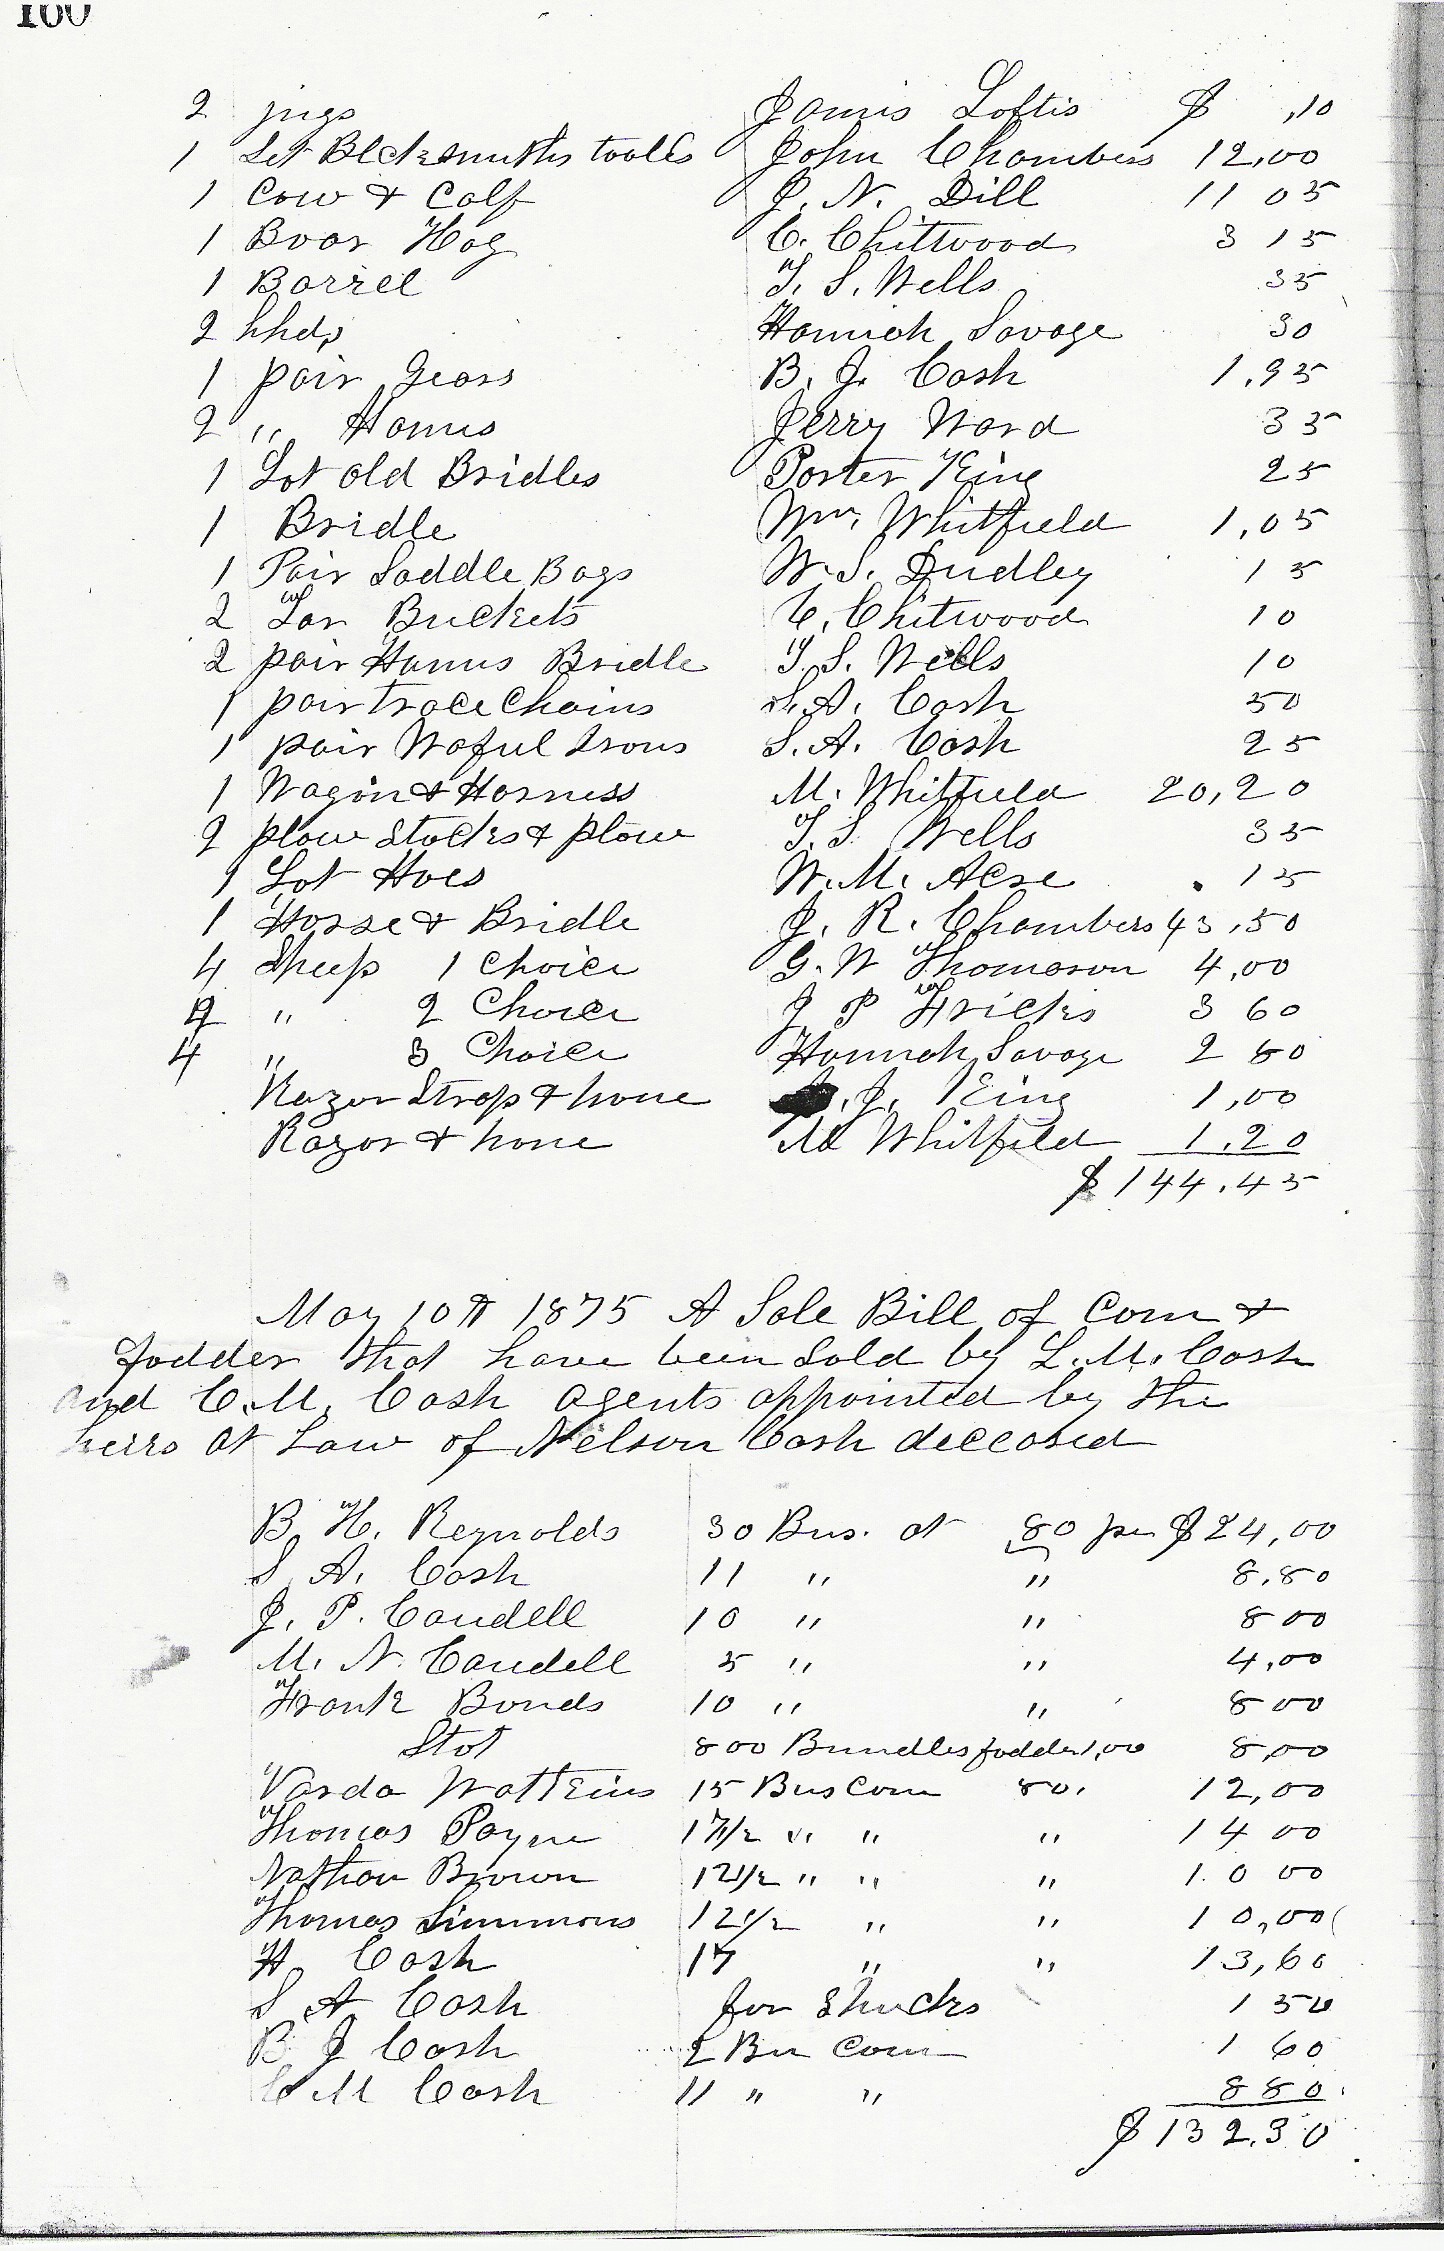 100
2 jugs Jamis Loftis $ ,10
1 Set Blcksmiths tools John Chambers 12,00
1 Cow & Calf J. N. Dill 11 05
1 Boar Hog C. Chittwood 3 15
1 Barrel T. S. Wells 35
2 hhds Hannah Savage 30
1 pair Gears B. J. Cash 1,95
2 " Hames Jerry Ward 35
1 Lot old Bridles Porter King 25
1 Bridle Wm. Whitfield 1,05
1 Pair Saddle Bags W. S. Dudley 15
2 Tar Buckets C. Chitwood 10
2 pair Hames Bridle T. S. Wells 10
1 pair trace Chains S. A. Cash 50
1 pair Waful Irons S. A. Cash 25
1 Wagon & Harness M. Whitfield 20,20
2 plow Stocks & plow T. S Wells 35
1 Lot Hoes W. M. Acre 15
1 Horse & Bridle J. R. Chambers 43,50
4 Sheep 1 Choice G. W Thomason 4,00
4 " 2 Choice J P Fricks 3 60
4 " 3 Choice Hannah Savage 2 80
Razor Strop & hone J. King 1,00
Razor & hone M Whitfield 1.20
$ 144.45
May 10th 1875 A Sale Bill of Corn &
fodder that have been sold by L. M. Cash
and C. M. Cash agents appointed by the
heirs at Law of Nelson Cash deceased
B. H. Reynolds 30 Bus. at 80 per $ 24,00
S. A. Cash 11 " " 8.80
J. P. Caudell 10 " " 8 00
M. N. Caudell 5 " " 4,00
Frank Bonds 10 " " 8 00
Stot 800 Bundles fodder 1,00 8,00
Varda Wattkins 15 Bus Corn 80. 12,00
Thomas Payne 17 1/2 " " " 14 00
Nathan Brown 12 1/2 " " " 10 00
Thomas Simmons 12 1/2 " " 10,00
H. Cash 17 " " 13,60
S. A Cash for Shucks 1 50
B J Cash 2 Bu Corn 1 60
C M Cash 11 " " 8 80
$ 132.30